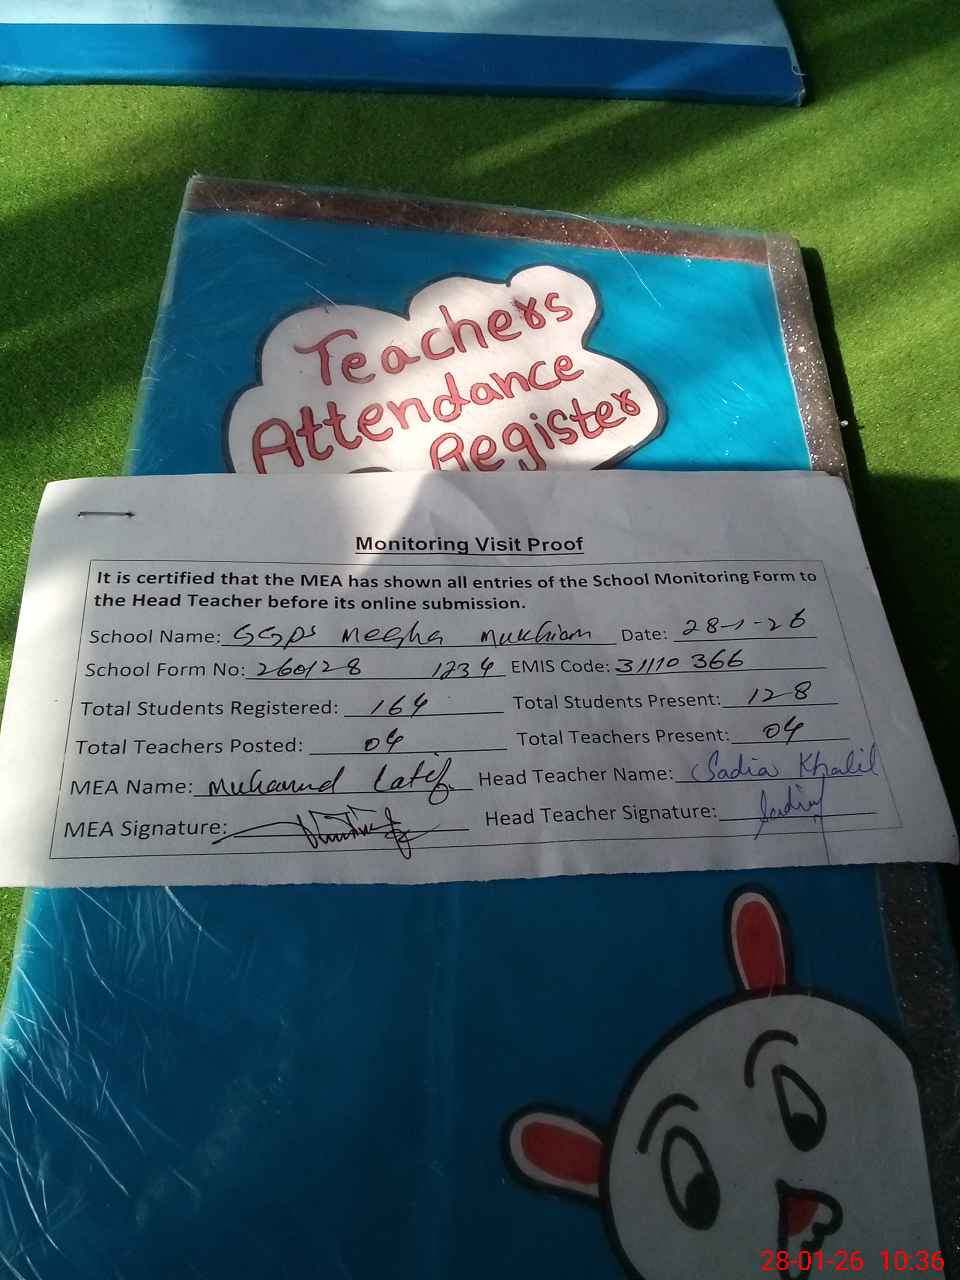 Teachers
Attendance
Register
Monitoring Visit Proof
It is certified that the MEA has shown all entries of the School Monitoring Form to
the Head Teacher before its online submission.
School Name: GGPS Megha Date: 28-1-26
School Form No: 260128 1234 EMIS Code: 31110366
Total Students Registered: 164 Total Students Present: 128
Total Teachers Posted: 04 Total Teachers Present: 04
MEA Name: Latif Head Teacher Name: Sadia Khalil
MEA Signature: Head Teacher Signature: Sadia
28-01-26 10:36